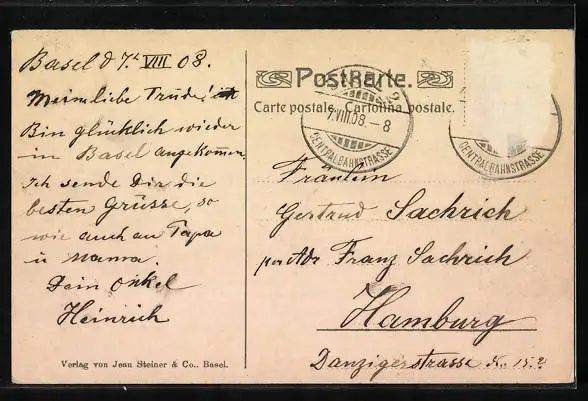 Basel d 7. VIII 08.
Meine liebe Trude!
Bin glücklich wieder
in Basel angekommen.
Ich sende Dir die
besten Grüsse, so
wie auch an Papa
u Mama.
Dein Onkel
Heinrich
Verlag von Jean Steiner & Co., Basel.
Postkarte.
Carte postale. Cartolina postale.
7.VIII.08.–8
CENTRALBAHNSTRASSE
CENTRALBAHNSTRASSE
Fräulein
Gertrud Sachrich
per Adr Franz Sachrich
Hamburg
Danzigerstrasse No. 15.